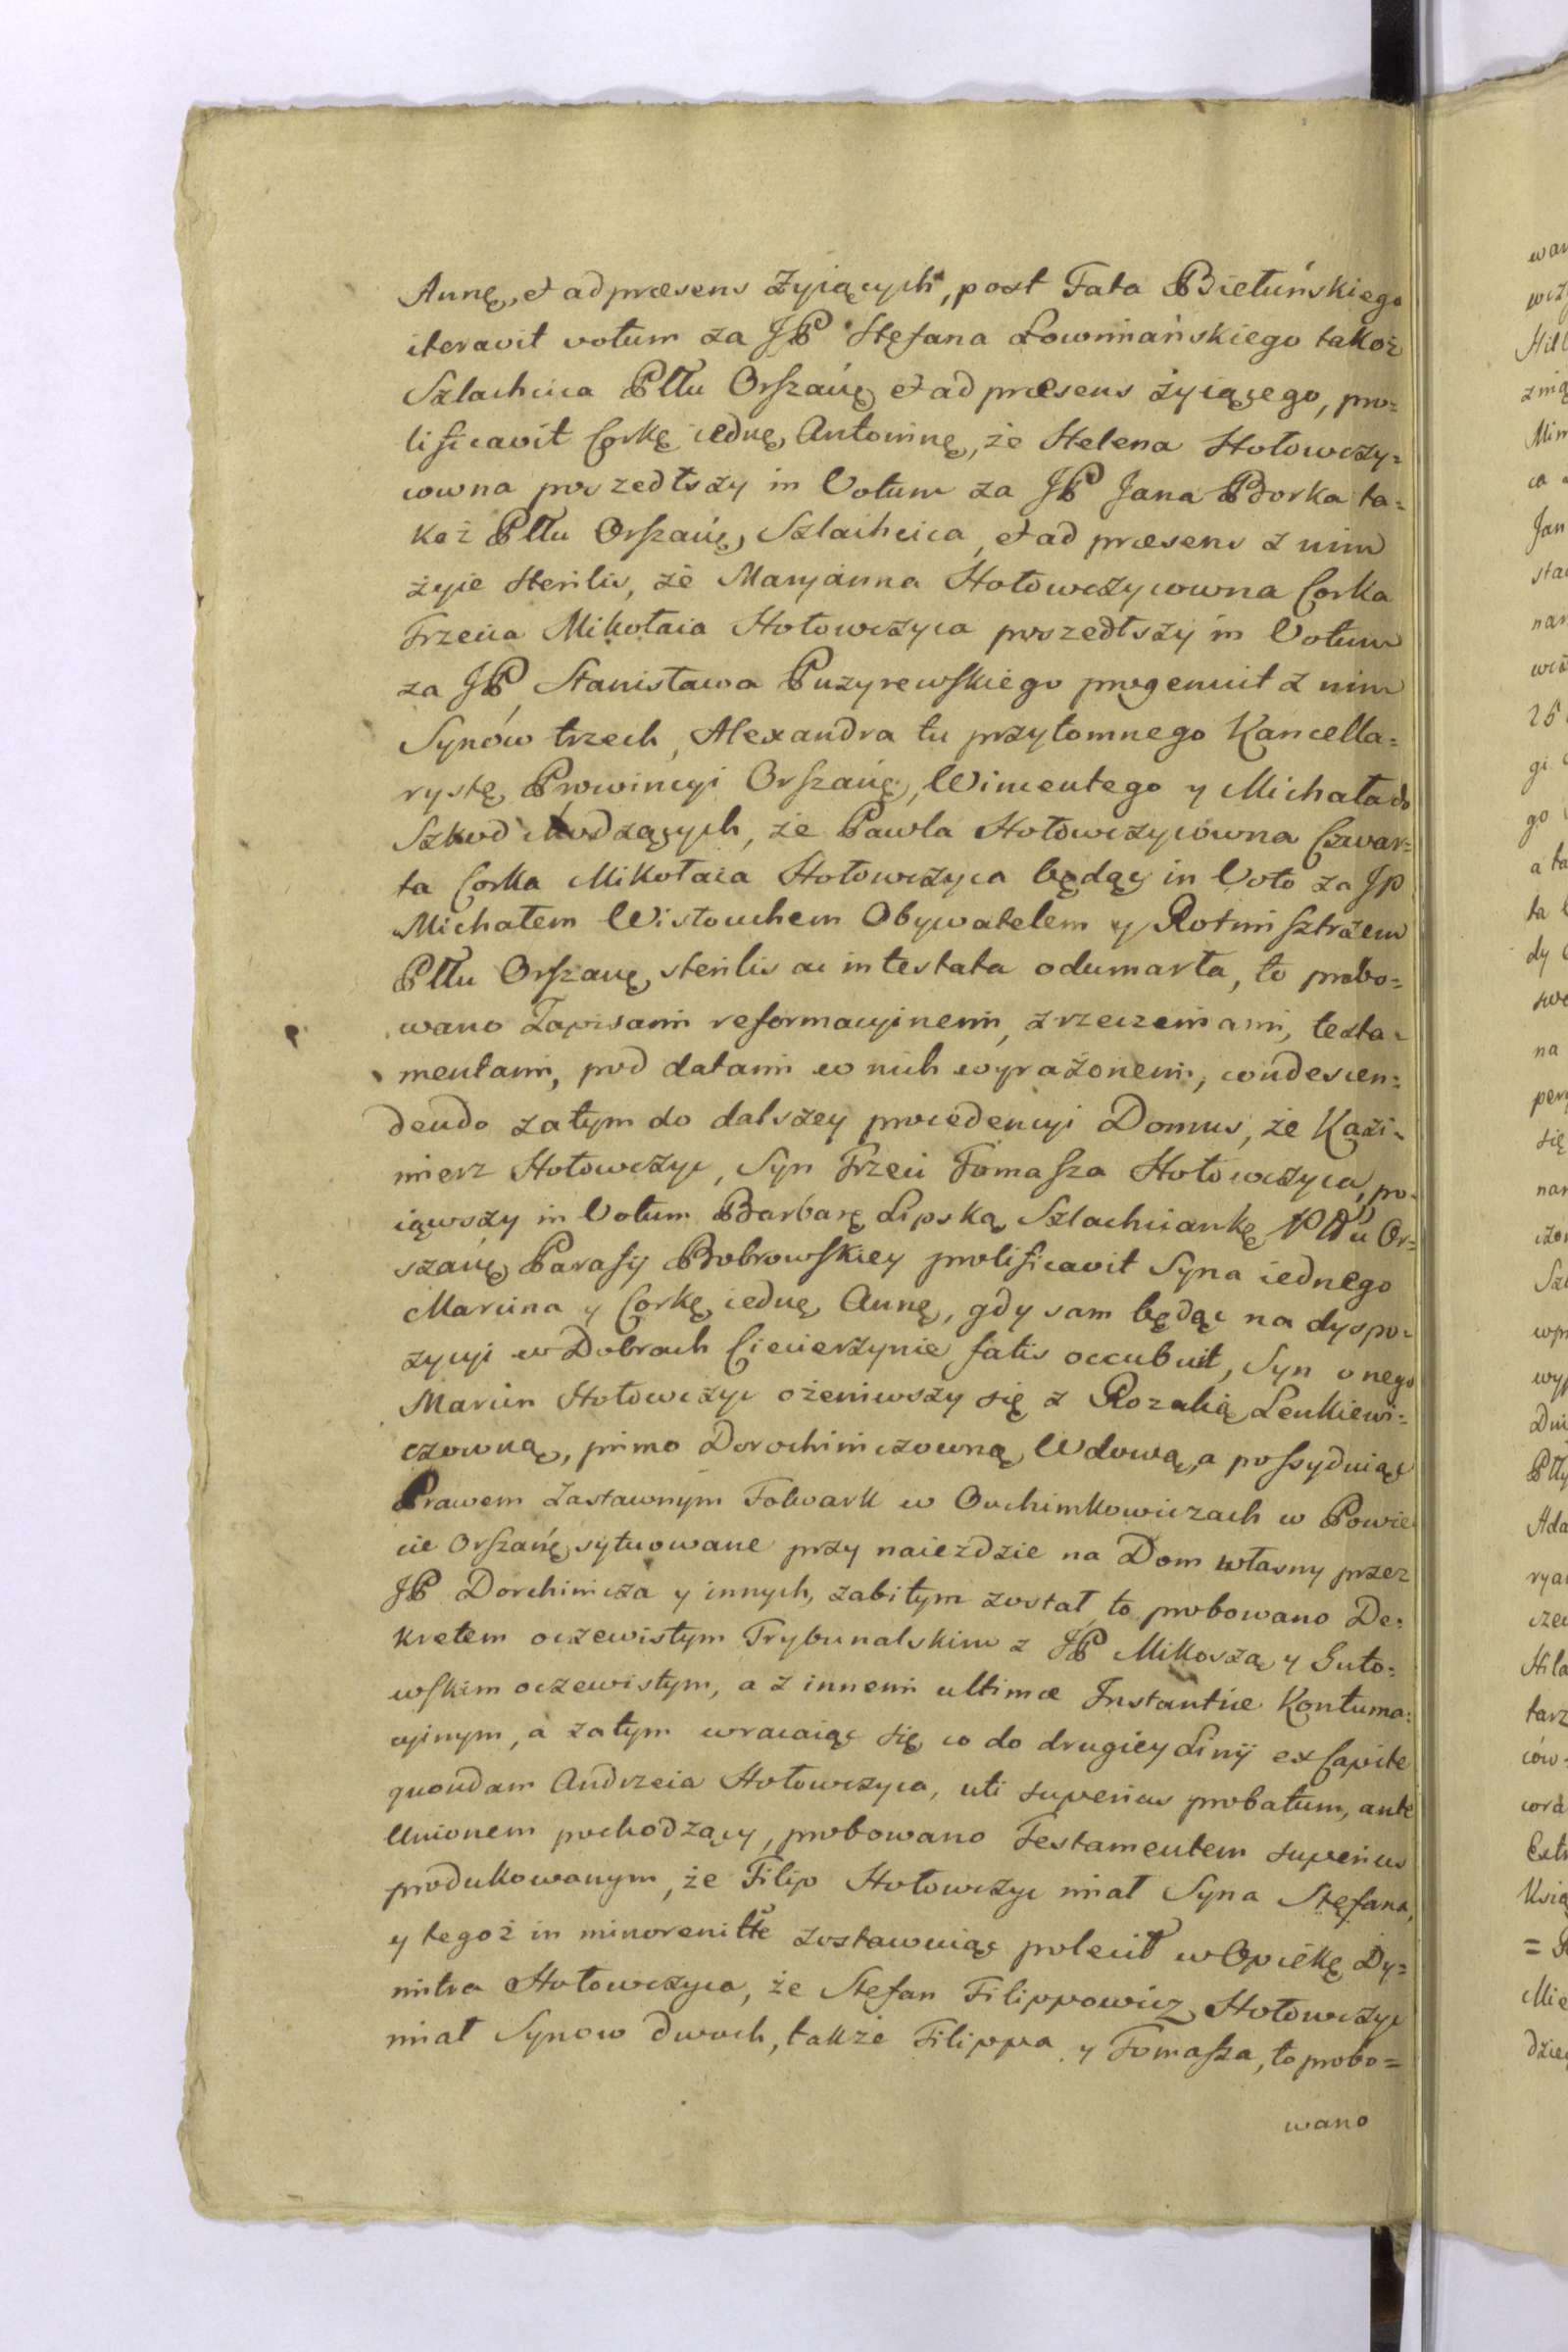 Annę, et ad præsens żyiących, post Fata Biełuńskiego
iteravit votum za JP Stefana Łowmiańskiego takoż
Szlachcica Pttu Orszańo et ad præsens żyiącego, pro=
lificavit Corkę iednę Antoninę, że Helena Hołowczy=
cowna poszedłszy in Votum za JP Jana Borka ta=
koż Pttu Orszańo Szlachcica, et ad præsens z nim
żyie sterilis, że Maryanna Hołowczycowna Corka
Trzecia Mikołaia Hołowczyca poszedłszy in Votum
za JP Stanisława Puzyrewskiego progenuit z nim
Synów trzech, Alexandra tu przytomnego Kancella=
rystę Prowincyi Orszańo, Wincentego y Michała do
Szkoł chodzących, że Pawla Hołowczycowna Czwar=
ta Corka Mikołaia Hołowczyca będąc in Voto za JP
Michałem Wisłouchem Obywatelem y Rotmisztrzem
Pttu Orszańo sterilis ac intestata odumarła, to probo=
wano Zapisami reformacyinemi, zrzeczeniami, testa=
mentami, pod datami w nich wyrażonemi, condescen=
dendo zatym do dalszey procedencyi Domus, że Kazi=
mierz Hołowczyc, Syn Trzeci Tomasza Hołowczyca, po=
iąwszy in Votum Barbarę Lipską Szlachciankę Pttu Or=
szańo Parafij Bobrowskiey prolificavit Syna iednego
Marcina y Corkę iednę Annę, gdy sam będąc na dyspo=
zycyi w Dobrach Ciecierzynie fatis occubuit, Syn onego
Marcin Hołowczyc ożeniwszy się z Rozalią Lenkiewi=
czowną, primo Dorochiniczowną Wdową, a possyduiąc
Prawem Zastawnym Folwark w Ouchimkowiczach w Powie
cie Orszańo sytuowane przy naieździe na Dom własny przez
JP Dorchinicza y innych, zabitym został, to probowano De=
kretem oczewistym Trybunalskim z JP Mikoszą y Guto=
wskim oczewistym, a z innemi ultimæ Instantiæ Kontuma=
cyinym, a zatym wracaiąc się co do drugiey Linij ex Capite
quondam Andrzeia Hołowczyca, uti superius probatum, ante
Unionem pochodzący, probowano Testamentem superius
produkowanym, że Filip Hołowczyc miał Syna Stefana,
y tegoż in minorenitte zostawuiąc polecił w Opiekę Dy=
mitra Hołowczyca, że Stefan Filippowicz Hołowczyc
miał Synow dwoch, także Filippa y Tomasza, to probo=
wano